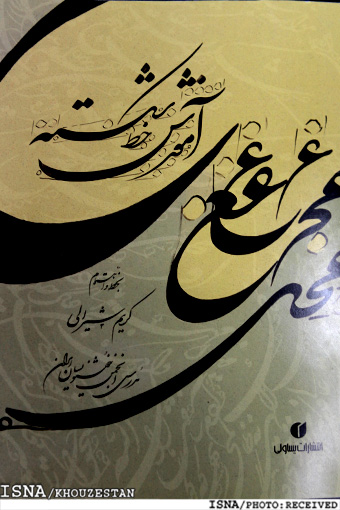 آموزش خط شکسته
بخط و اهتمام
کریم شیرالی
مدرس انجمن خوشنویسان ایران
انتشارات یساولی
ISNA/KHOUZESTAN
ISNA/PHOTO:RECEIVED